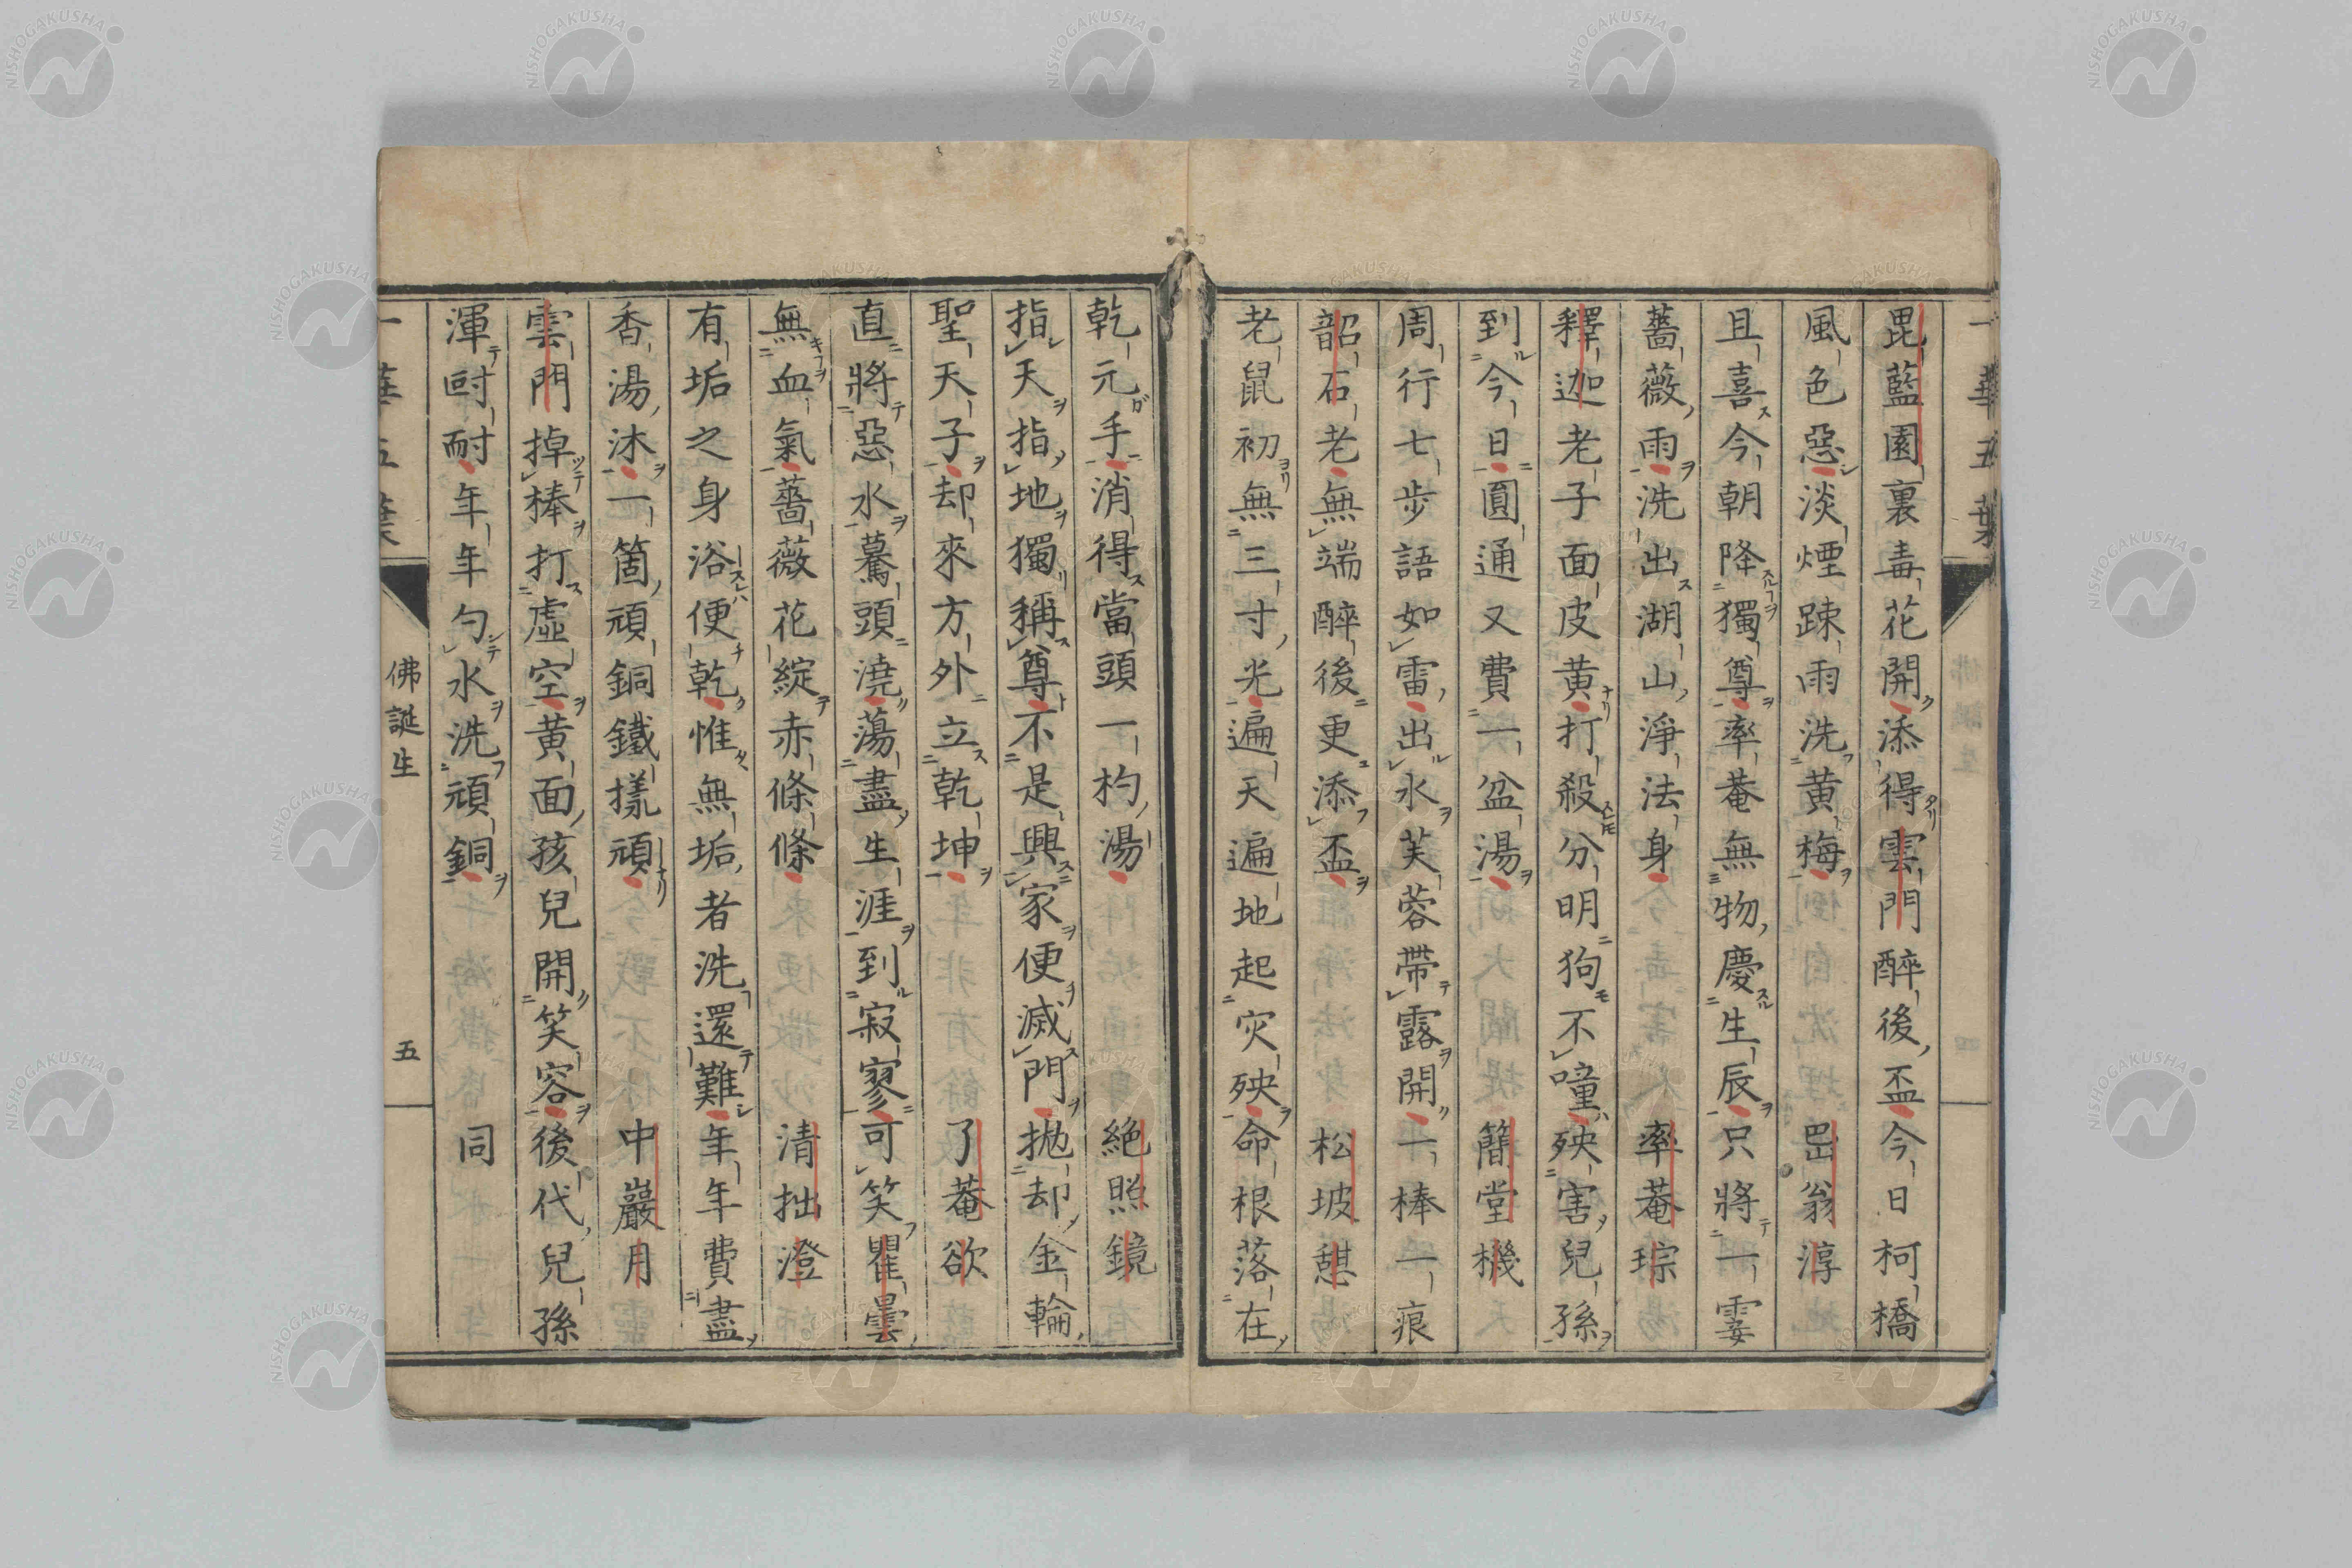 一華五葉
毘藍園裏毒花開添得雲門醉後盃今日柯橋
風色惡淡煙踈雨洗黃梅 嵒翁淳
且喜今朝降獨尊率菴無物慶生辰只將一
薔薇雨洗出湖山淨法身 率菴琮
釋迦老子面皮黃打殺分明狗不噇殃害兒孫
到今日圓通又費一盆湯 簡堂機
周行七步語如雷出水芙蓉帶露開一棒一痕
韶石老無端醉後更添盃 松坡憇
老鼠初無三寸光遍天遍地起灾殃命根落在
乾元手消得當頭一杓湯 絕照鏡
指天指地獨稱尊不是興家便滅門拋却金輪
聖天子却來方外立乾坤 了菴欲
直將惡水驀頭澆蕩盡生涯到寂寥可笑瞿曇
無血氣薔薇花綻赤條條 清拙澄
有垢之身浴便乾惟無垢者洗還難年年費盡
香湯沐一箇頑銅鐵㨾頑 中巖月
雲門掉棒打虛空黃面孩兒開笑容後代兒孫
渾㽬耐年年勺水洗頑銅 同
一華五葉 佛誕生 五
NISHOGAKUSHA